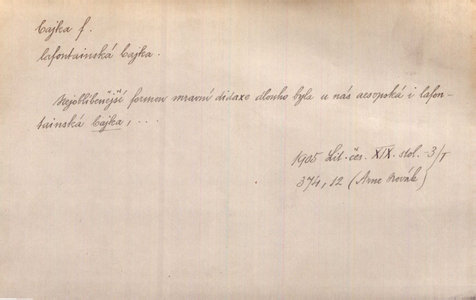 bajka f.
lafontainská bajka.
Nejoblíbenější formou mravní didaxe dlouho byla u nás aesopská i lafon-
tainská bajka, ...
1905 Lit. čes. XIX. stol. 3/I
374, 12 (Arne Novák)